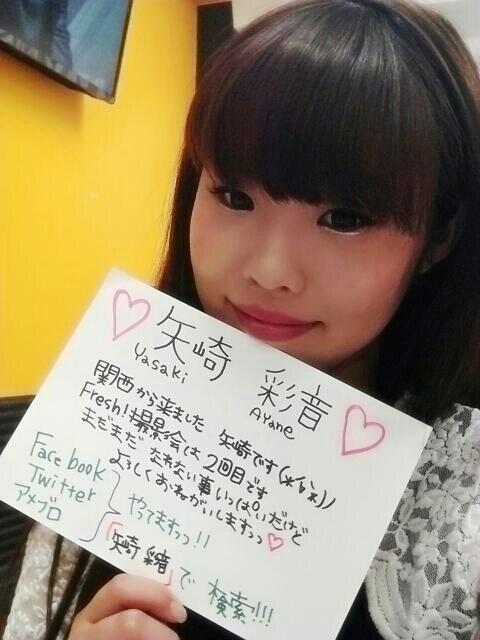 矢崎 彩音
Yasaki Ayane
関西から来ました 矢崎です(*'▽'*)ﾉ
Fresh!撮影会は 2回目です
まだまだ なれない事いっぱいだけど
よろしくおねがいしますっっ♡
Facebook
Twitter
アメブロ
やってますっ!!
「矢崎 彩緒」で 検索!!!